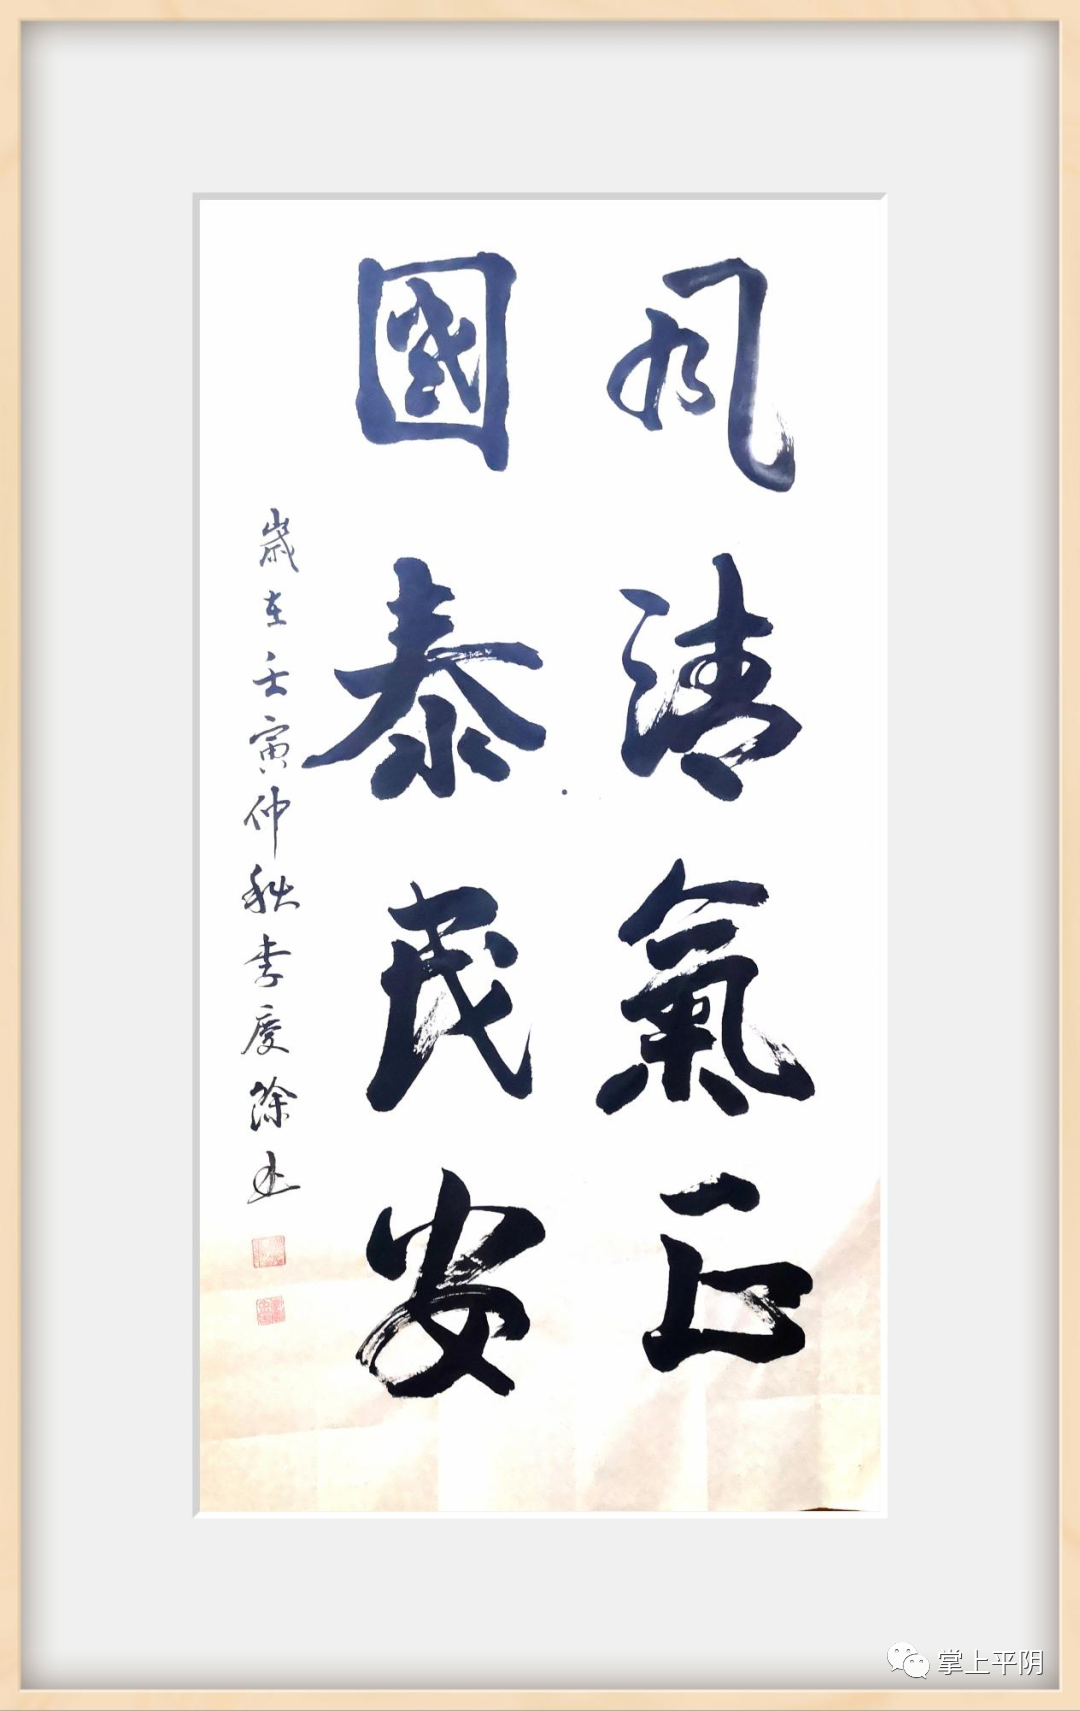 风清氣正
國泰民安
歲在壬寅仲秋李慶餘书
掌上平阴